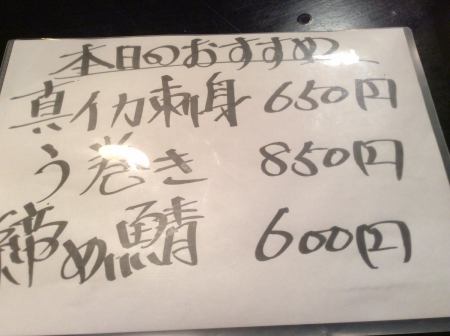 本日のおすすめ
真イカ刺身 650円
う巻き 850円
締め鯖 600円